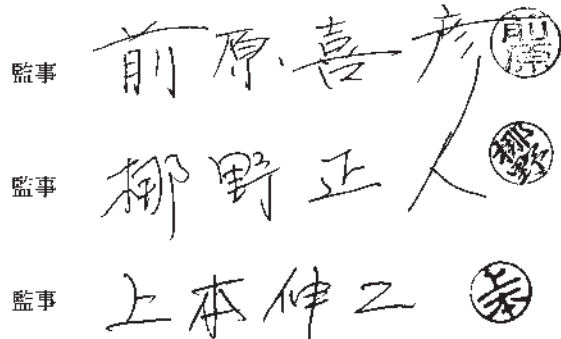 監事 前原喜彦 前原
監事 梛野正人 梛野
監事 上本伸二 上本